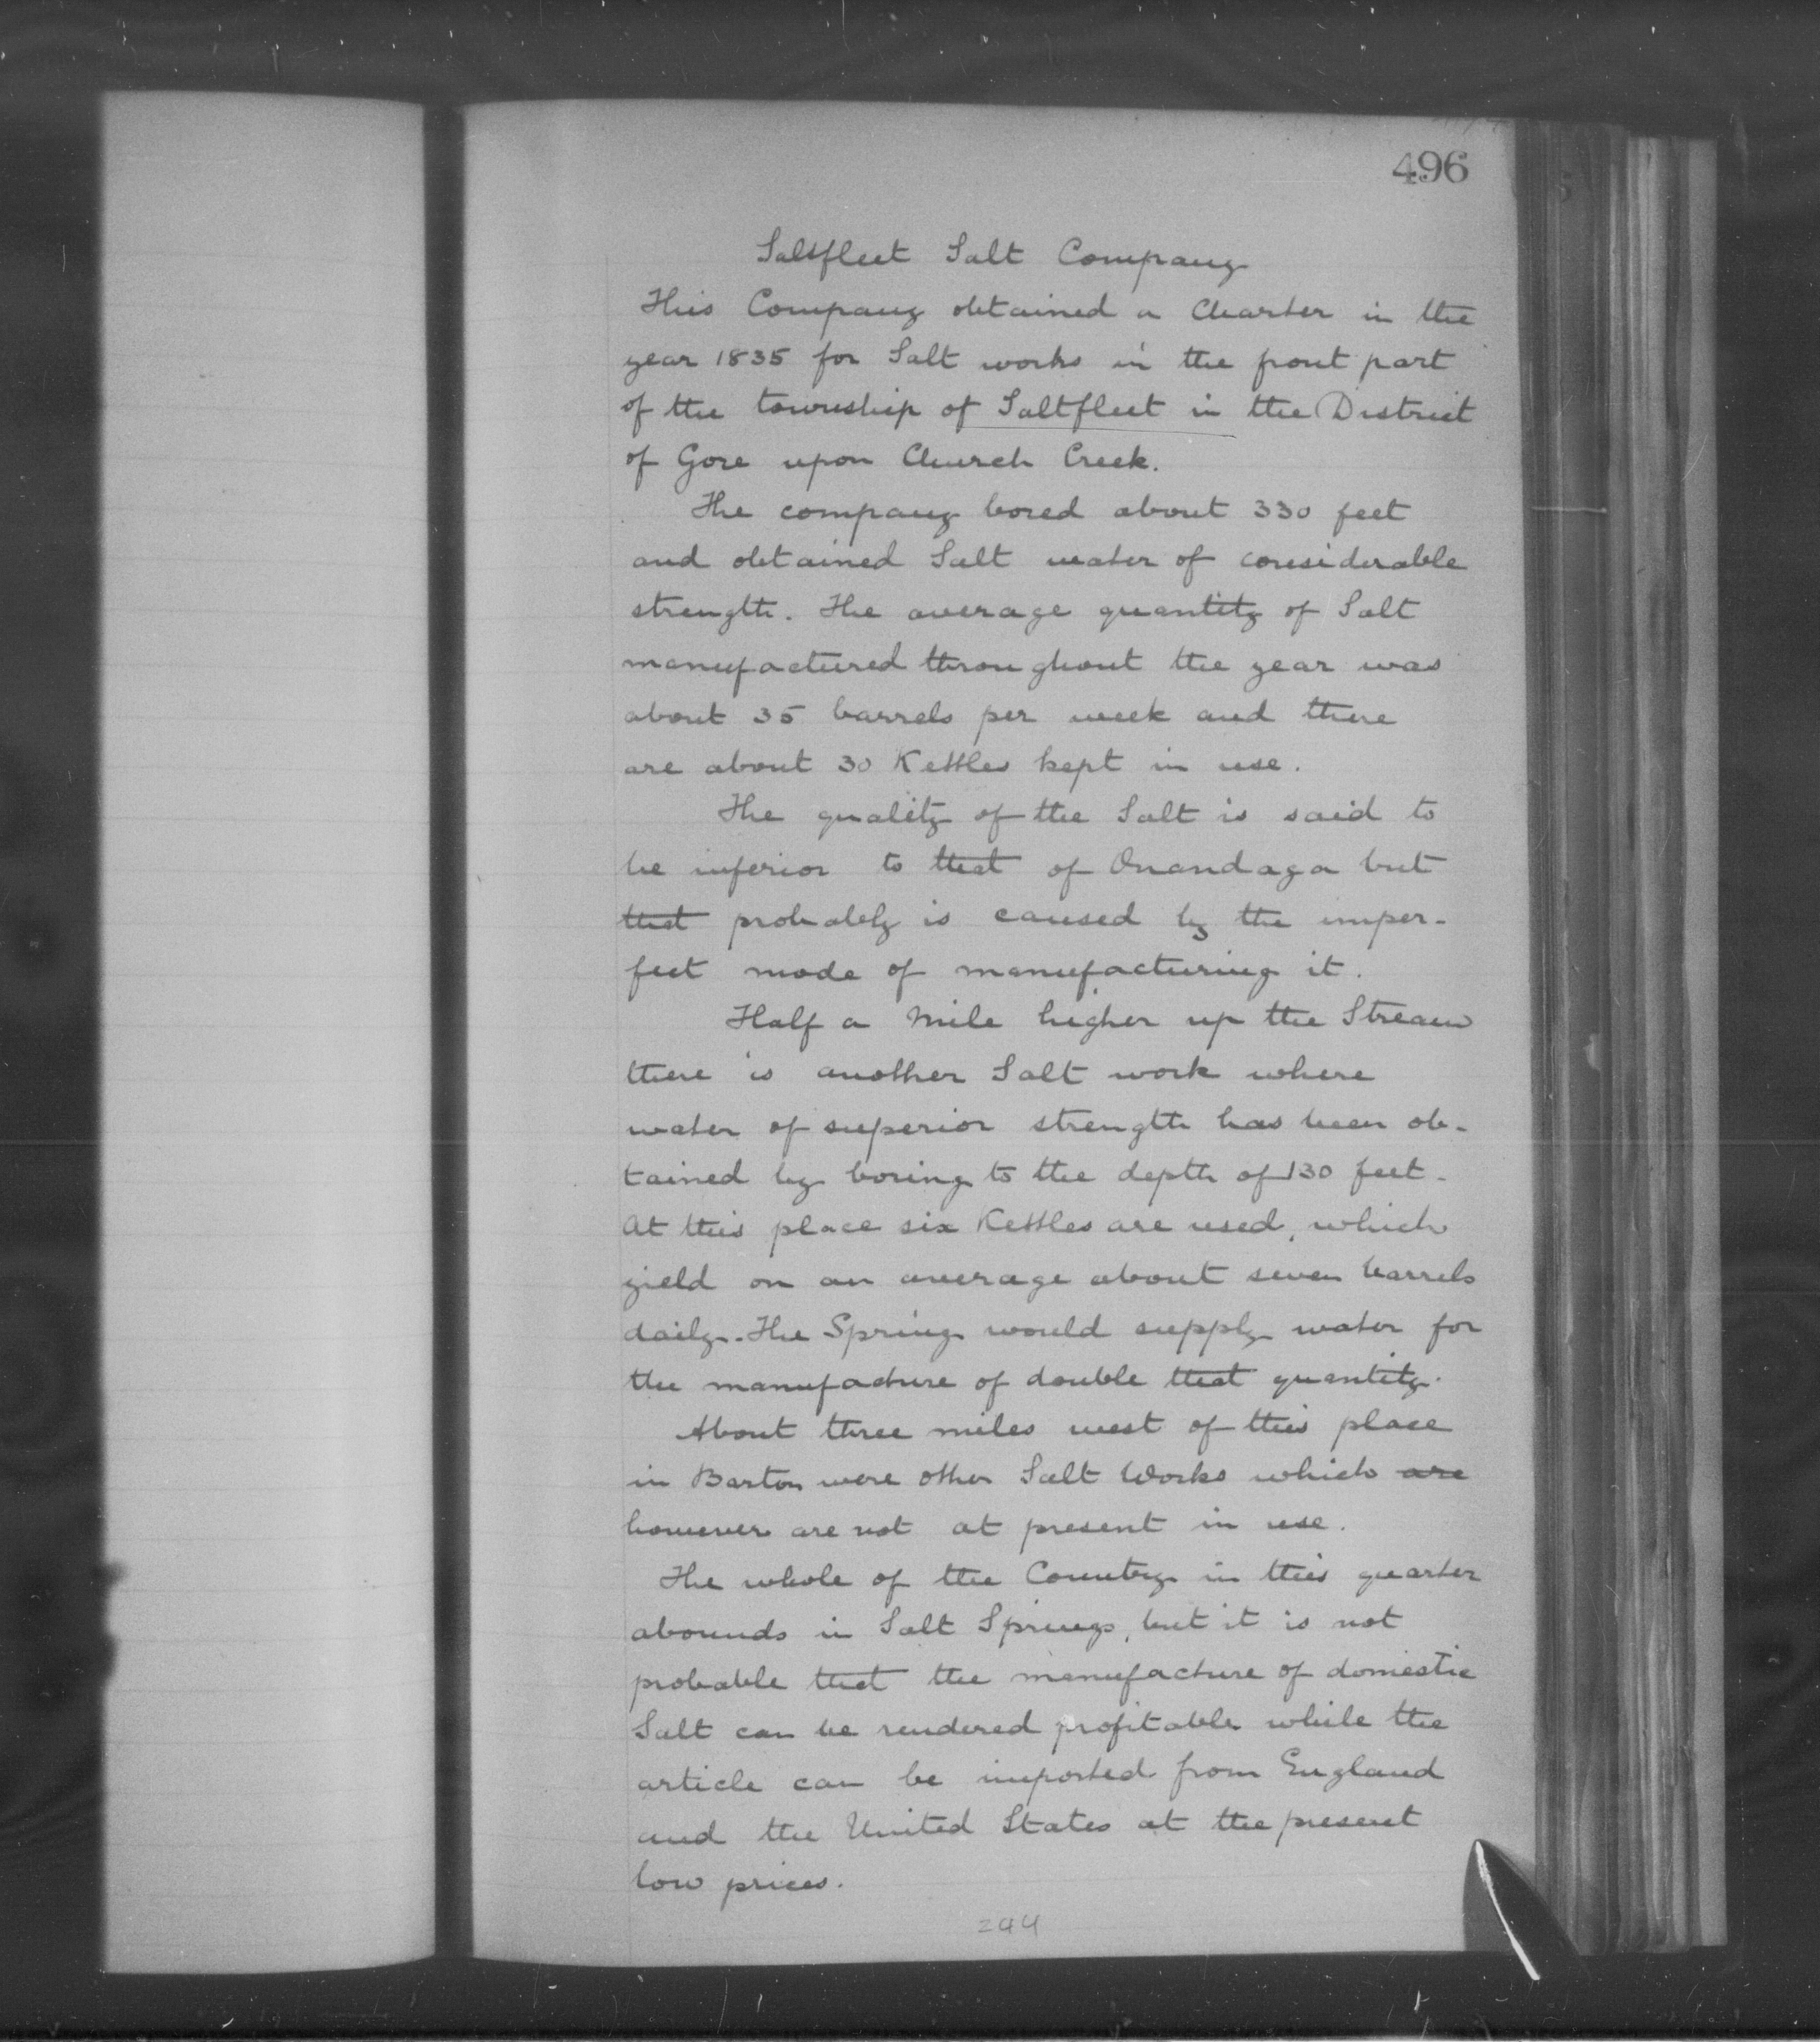 496
Saltfleet Salt Company
This Company obtained a Charter in the
year 1835 for Salt works in the front part
of the township of Saltfleet in the District
of Gore upon Church Creek.
The company bored about 330 feet
and obtained Salt water of considerable
strength. The average quantity of Salt
manufactured throughout the year was
about 35 barrels per week and there
are about 30 Kettles kept in use.
The quality of the Salt is said to
be inferior to that of Onandaga but
that probably is caused by the imper-
fect mode of manufacturing it.
Half a Mile higher up the Stream
there is another Salt work where
water of superior strength has been ob-
tained by boring to the depth of 130 feet.
At this place six Kettles are used, which
yield on an average about seven barrels
daily. The Spring would supply water for
the manufacture of double that quantity.
About three miles west of this place
in Barton were other Salt Works which are
however are not at present in use.
The whole of the Country in this quarter
abounds in Salt Springs, but it is not
probable that the manufacture of domestic
Salt can be rendered profitable while the
article can be imported from England
and the United States at the present
low prices.
244